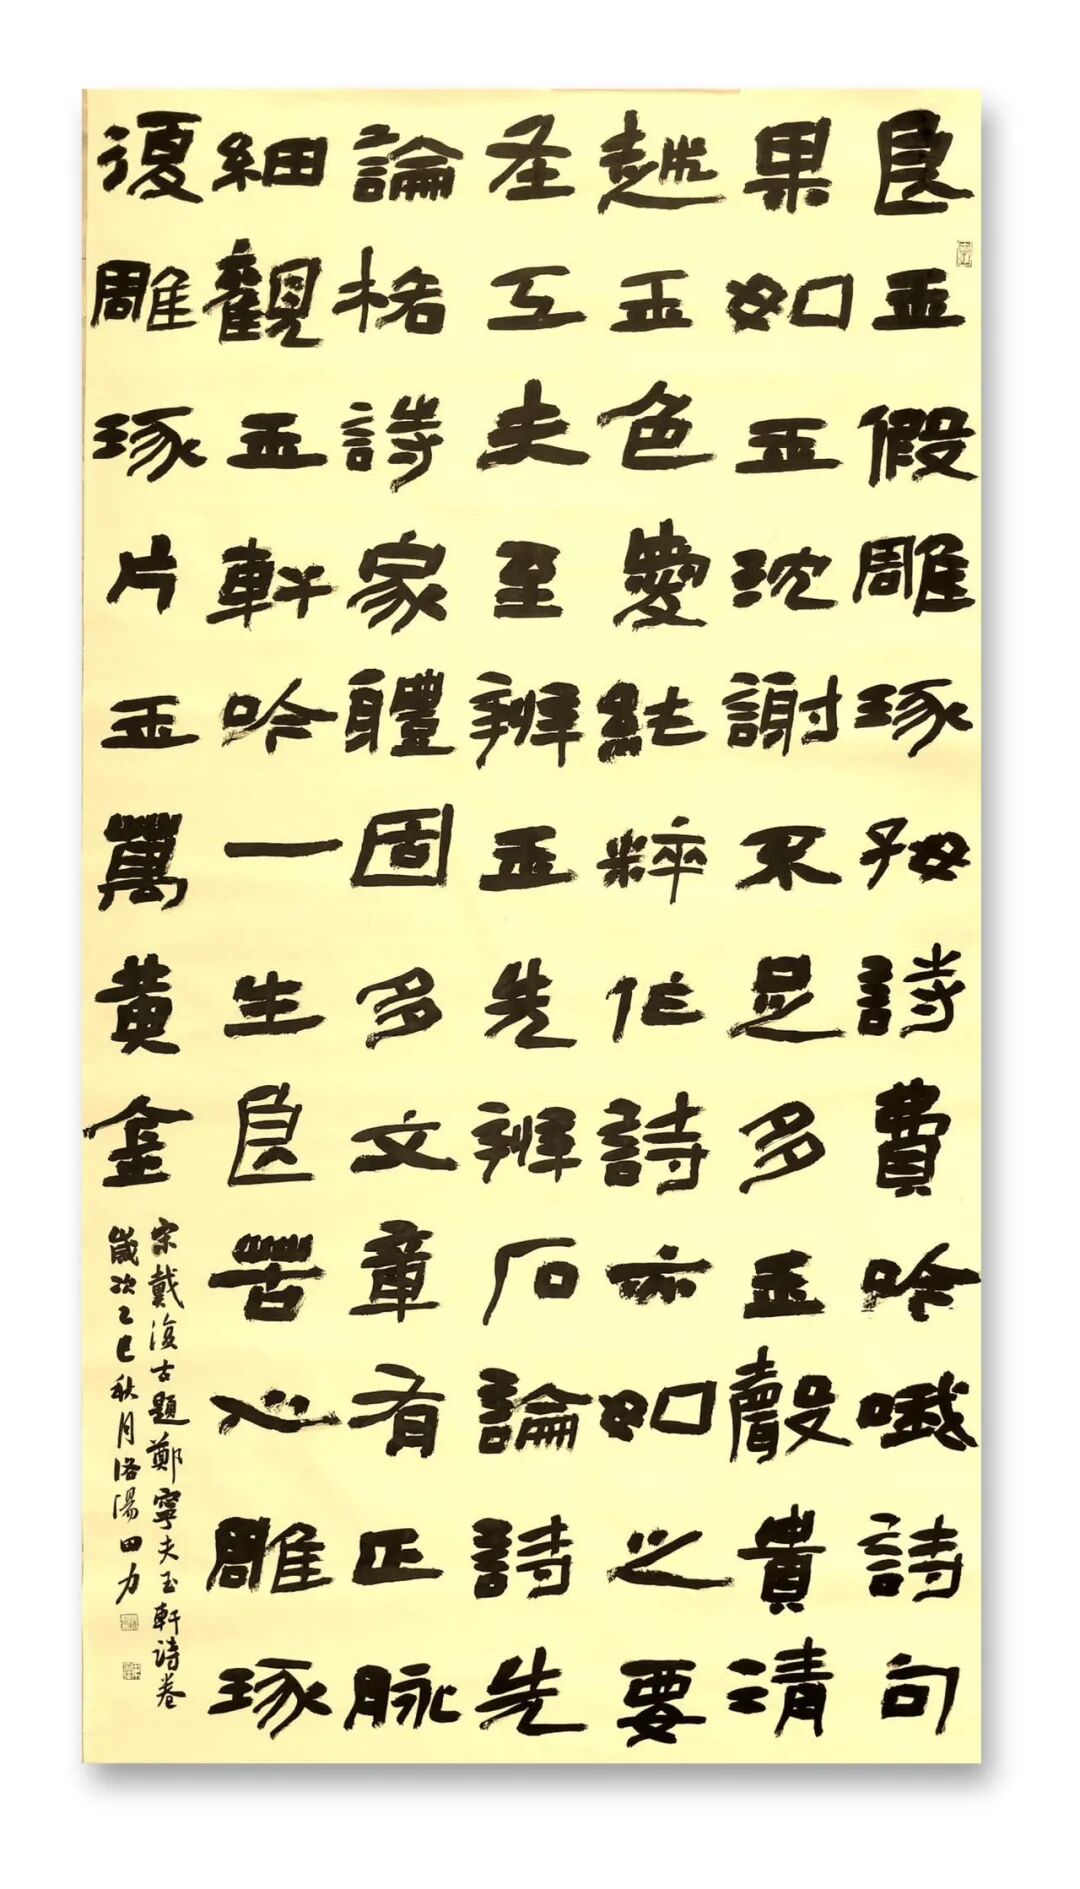 良玉假雕琢好詩費吟哦詩句
果如玉沈謝不足多玉聲貴清
越玉色愛純粹作詩亦如之要
在工夫至辨玉先辨石論詩先
論格詩家體固多文章有正脉
細觀玉軒吟一生良苦心雕琢
復雕琢片玉萬黃金
宋戴復古題鄭寧夫玉軒詩卷
歲次乙巳秋月洛陽田力